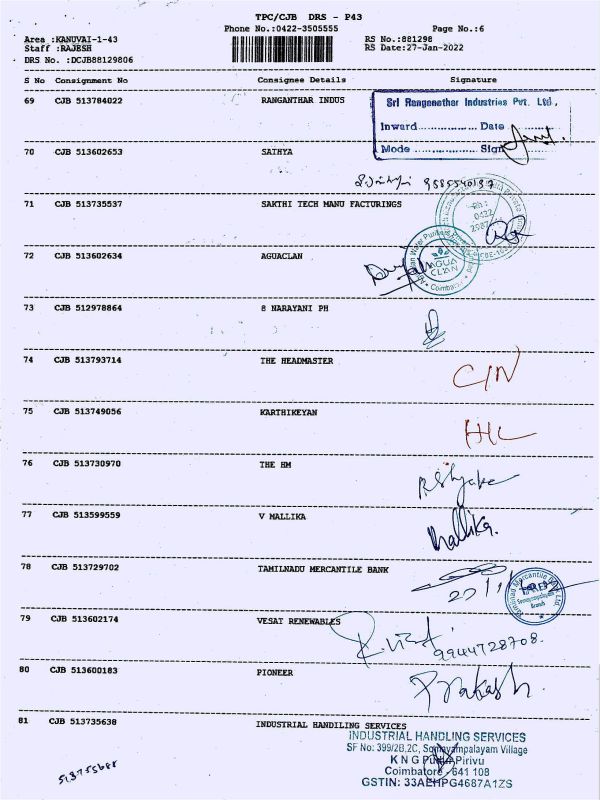 TPC/CJB DRS - P43
Phone No.:0422-3505555 Page No.:6
Area :KANUVAI-1-43 RS No.:881298
Staff :RAJESH RS Date:27-Jan-2022
DRS No. :DCJB88129806
S No Consignment No Consignee Details Signature
69 CJB 513784022 RANGANTHAR INDUS
Sri Rangenathar Industries Pvt. Ltd.,
Inward................. Date
Mode .................. Sign
70 CJB 513602653 SATHYA
9585540197
71 CJB 513735537 SAKTHI TECH MANU FACTURINGS
Ph :
0422
72 CJB 513602634 AGUACLAN
AGUA
CLAN
73 CJB 512978864 8 NARAYANI PH
74 CJB 513793714 THE HEADMASTER
75 CJB 513749056 KARTHIKEYAN
76 CJB 513730970 THE HM
77 CJB 513599559 V MALLIKA
Mallika.
78 CJB 513729702 TAMILNADU MERCANTILE BANK
Branch
79 CJB 513602174 VESAT RENEWABLES
9944728708.
80 CJB 513600183 PIONEER
Prakash.
81 CJB 513735638 INDUSTRIAL HANDILING SERVICES
INDUSTRIAL HANDLING SERVICES
SF No: 399/2B,2C, Somayampalayam Village
K N G Pudur Pirivu
Coimbatore - 641 108
GSTIN: 33AEHPG4687A1ZS